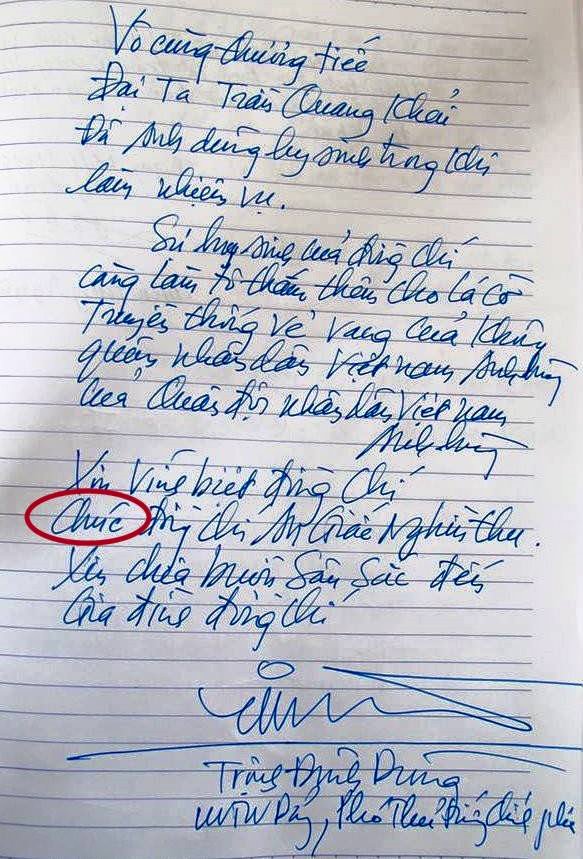 Vô cùng thương tiếc
Đại Tá Trần Quang Khải
Đã Anh dũng hy sinh trong khi
làm nhiệm vụ.
Sự hy sinh của đồng chí
càng làm tô thắm thêm cho lá cờ
truyền thống vẻ vang của Không
quân nhân dân Việt nam Anh hùng
của Quân đội nhân dân Việt nam
Anh hùng
Xin Vĩnh biệt đồng chí
Chúc đồng chí An Giấc Nghìn thu.
Xin chia buồn sâu sắc đến
Gia đình đồng chí
Trịnh Đình Dũng
UVTW Đảng, Phó Thủ tướng Chính phủ